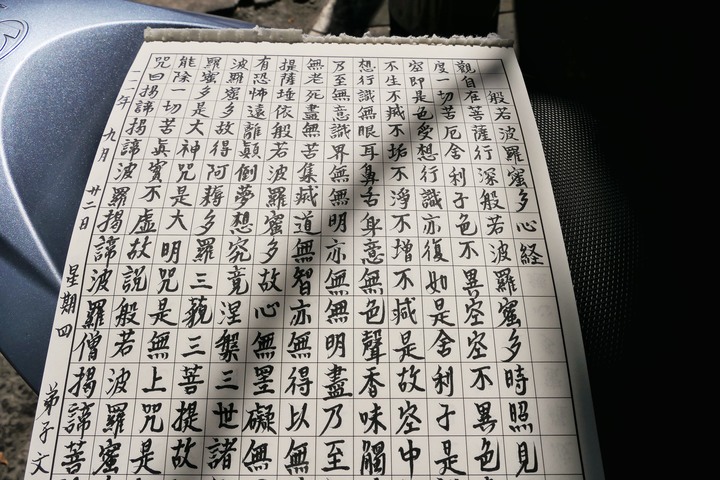 般若波羅蜜多心経
觀自在菩薩行深般若波羅蜜多時照見
度一切苦厄舍利子色不異空空不異色
空即是色受想行識亦復如是舍利子是
不生不滅不垢不淨不增不減是故空中
想行識無眼耳鼻舌身意無色聲香味觸
乃至無意識界無無明亦無無明盡乃至
無老死盡無苦集滅道無智亦無得以無
提薩埵依般若波羅蜜多故心無罣礙無
有恐怖遠離顛倒夢想究竟涅槃三世諸
波羅蜜多故得阿耨多羅三藐三菩提故
羅蜜多是大神咒是大明咒是無上咒是
能除一切苦真實不虛故說般若波羅蜜
呪曰揭諦揭諦波羅揭諦波羅僧揭諦菩
一一一年 九月 廿二日 星期四 弟子文